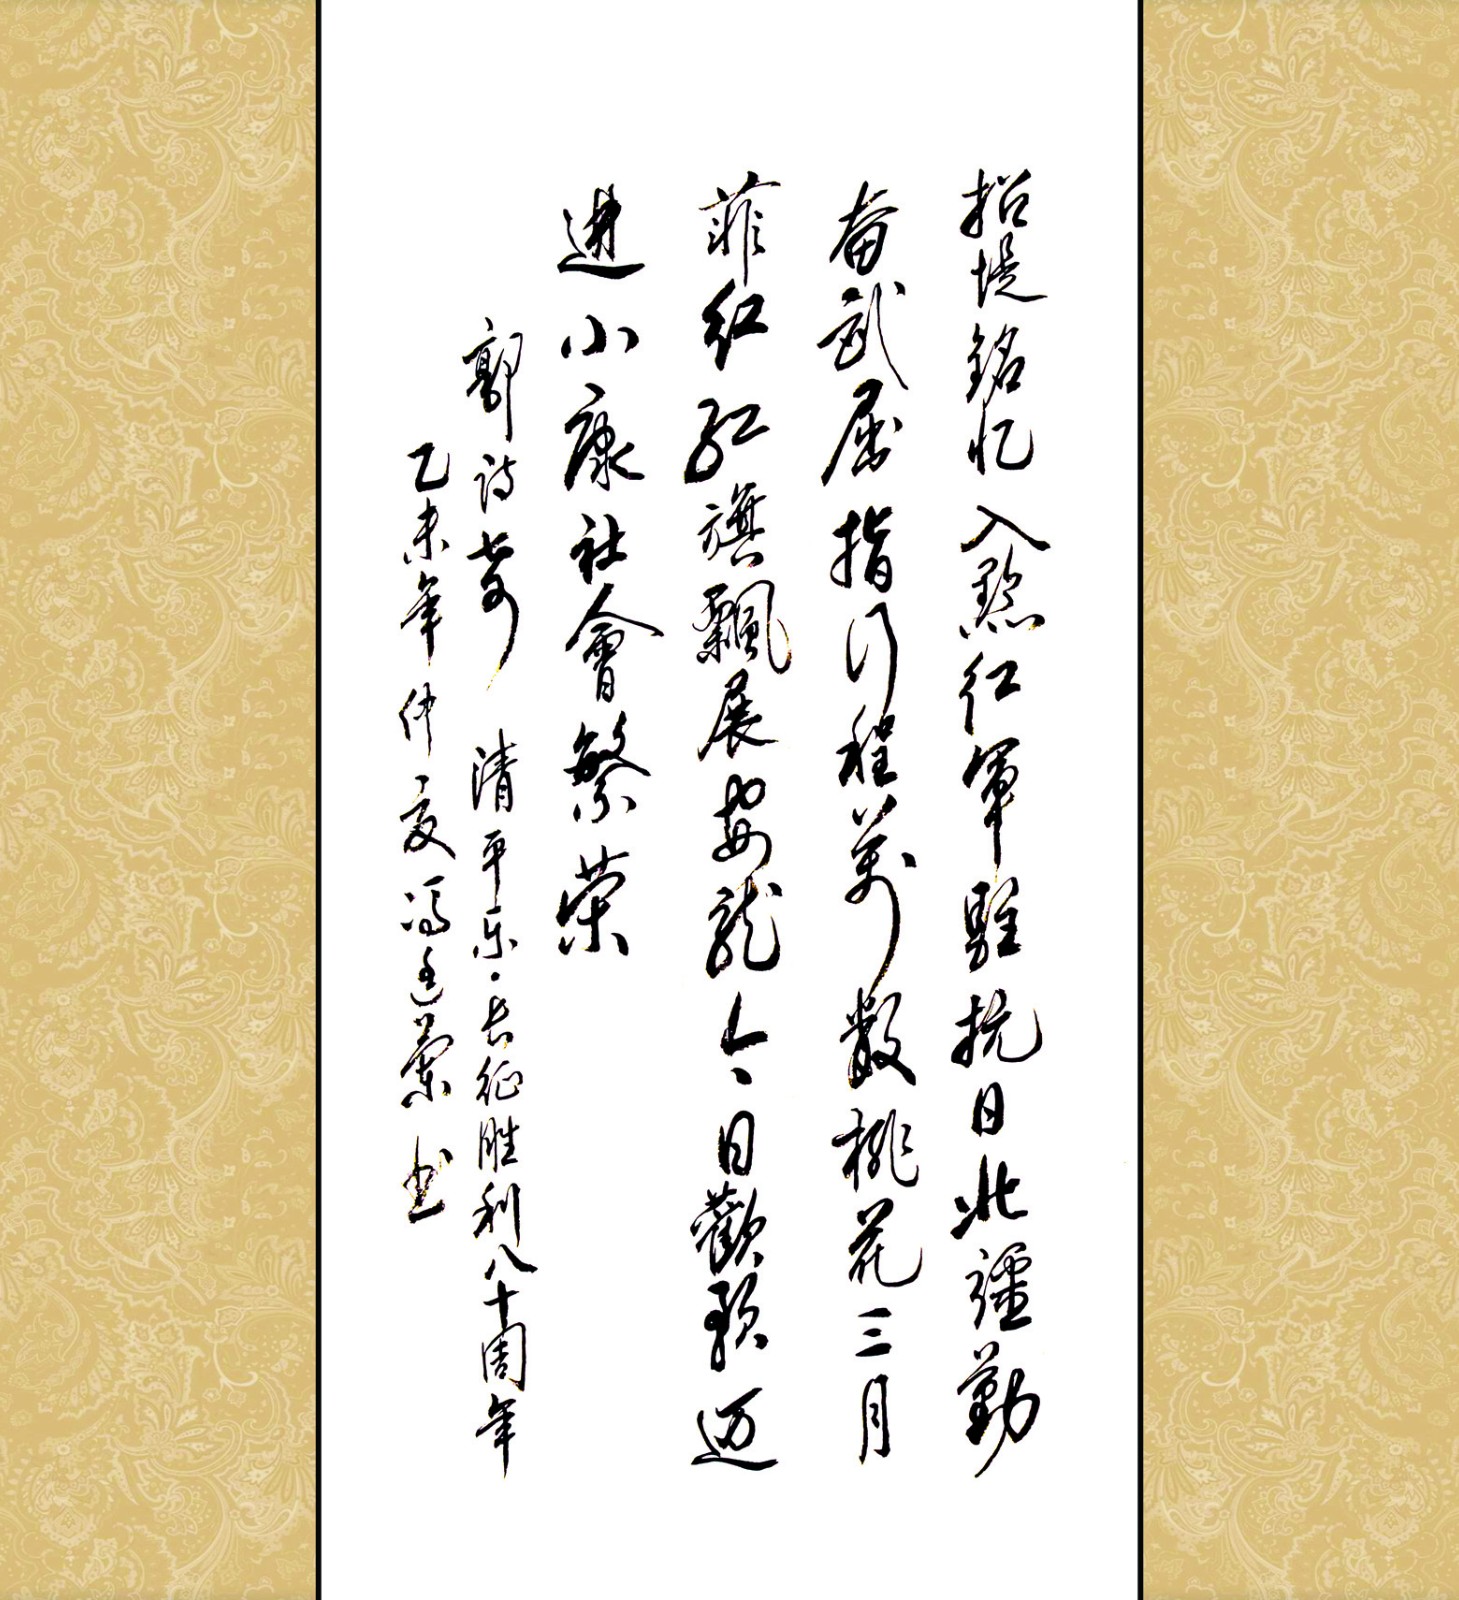 招堤铭忆入黔红军驻抗日北疆勤
奋武屈指行程万数桃花三月
菲红红旗飘展安龙今日歡歌迈
进小康社會繁荣
郭诗 清平乐·长征胜利八十周年
乙未年仲夏冯 兰书